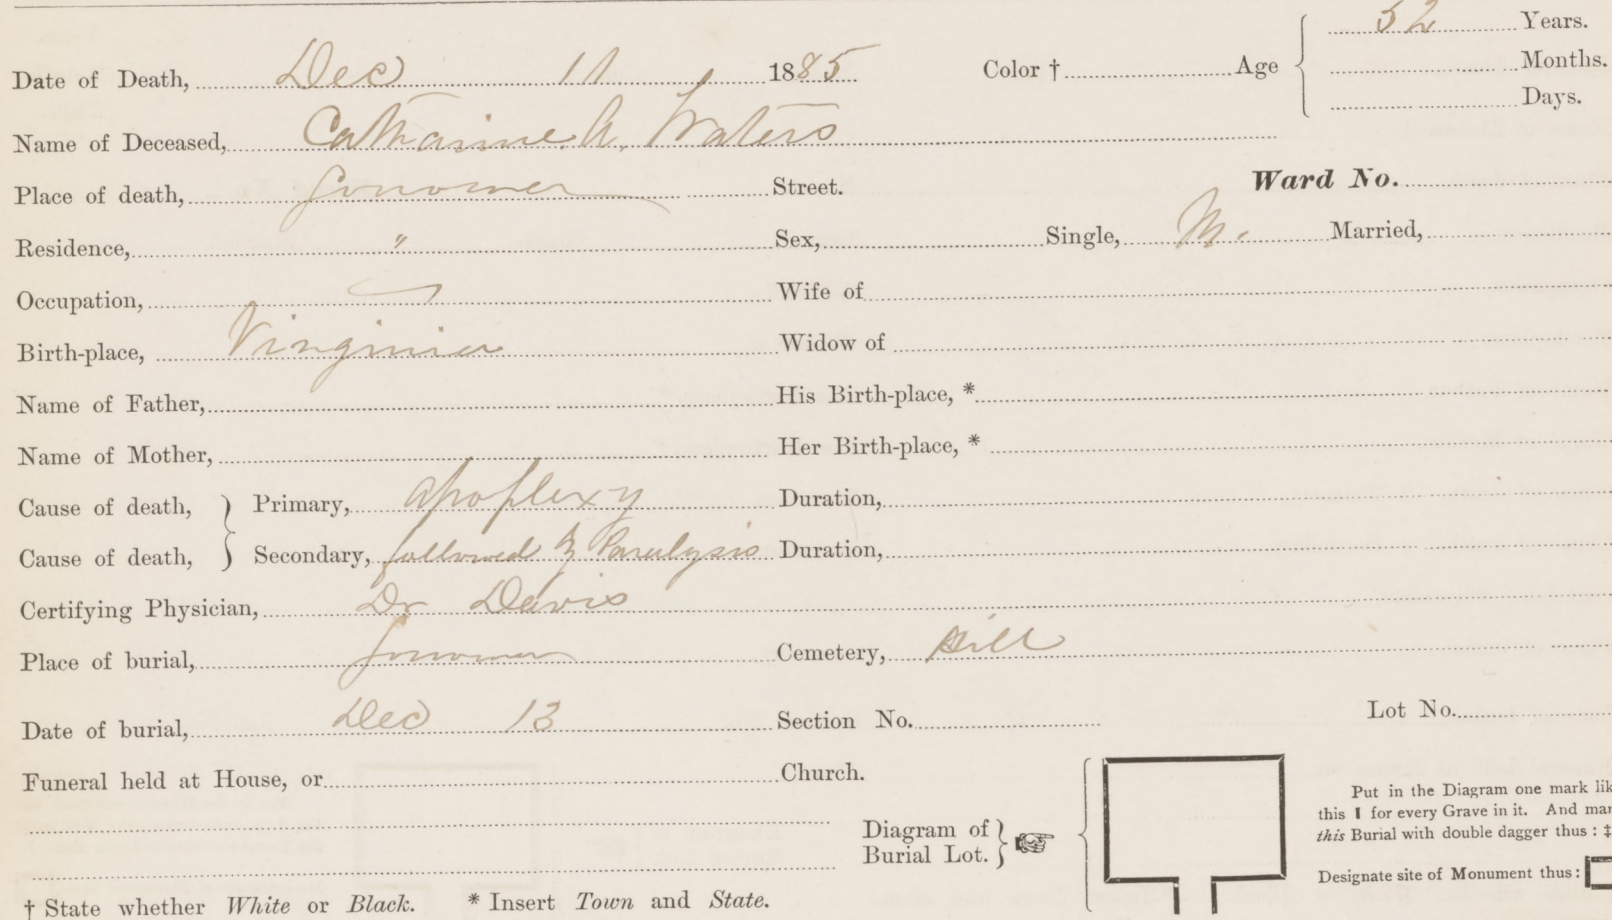 52 Years.
Date of Death, Dec 11 1885 Color † Age Months.
Days.
Name of Deceased, Catharine A. Waters
Place of death, Gouverneur Street. Ward No.
Residence, " Sex, Single, M. Married,
Occupation, Wife of
Birth-place, Virginia Widow of
Name of Father, His Birth-place, *
Name of Mother, Her Birth-place, *
Cause of death, } Primary, apoplexy Duration,
Cause of death, } Secondary, followed by Paralysis Duration,
Certifying Physician, Dr Davis
Place of burial, Cemetery, Hill
Date of burial, Dec 13 Section No. Lot No.
Funeral held at House, or Church.
Put in the Diagram one mark lik
this I for every Grave in it. And mar
this Burial with double dagger thus : ‡
Diagram of
Burial Lot. }
Designate site of Monument thus :
† State whether White or Black. * Insert Town and State.